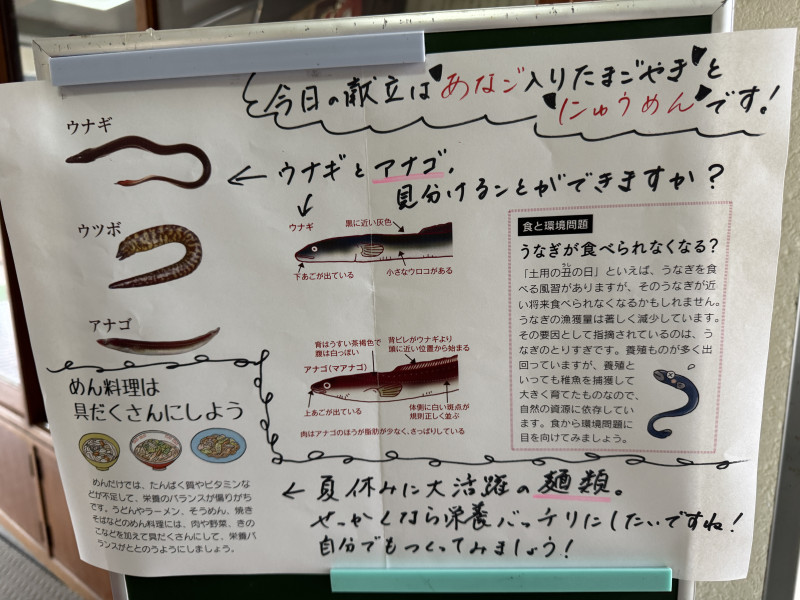 今日の献立は"あなご入りたまごやき"と
"にゅうめん"です!
ウナギ
ウツボ
アナゴ
← ウナギとアナゴ、
見分けることができますか?
ウナギ
黒に近い灰色
下あごが出ている
小さなウロコがある
背はうすい茶褐色で
腹は白っぽい
背ビレがウナギより
頭に近い位置から始まる
アナゴ(マアナゴ)
上あごが出ている
体側に白い斑点が
規則正しく並ぶ
肉はアナゴのほうが脂肪が少なく、さっぱりしている
食と環境問題
うなぎが食べられなくなる?
「土用の丑の日」といえば、うなぎを食
うし
べる風習がありますが、そのうなぎが近
い将来食べられなくなるかもしれません。
うなぎの漁獲量は著しく減少しています。
その要因として指摘されているのは、う
なぎのとりすぎです。養殖ものが多く出
回っていますが、養殖と
いっても稚魚を捕獲して
大きく育てたものなので、
自然の資源に依存してい
ます。食から環境問題に
目を向けてみましょう。
めん料理は
具だくさんにしよう
めんだけでは、たんぱく質やビタミンな
どが不足して、栄養のバランスが偏りがち
です。うどんやラーメン、そうめん、焼き
そばなどのめん料理には、肉や野菜、きの
こなどを加えて具だくさんにして、栄養バ
ランスがととのうようにしましょう。
← 夏休みに大活躍の麺類。
せっかくなら栄養バッチリにしたいですね!
自分でもつくってみましょう!